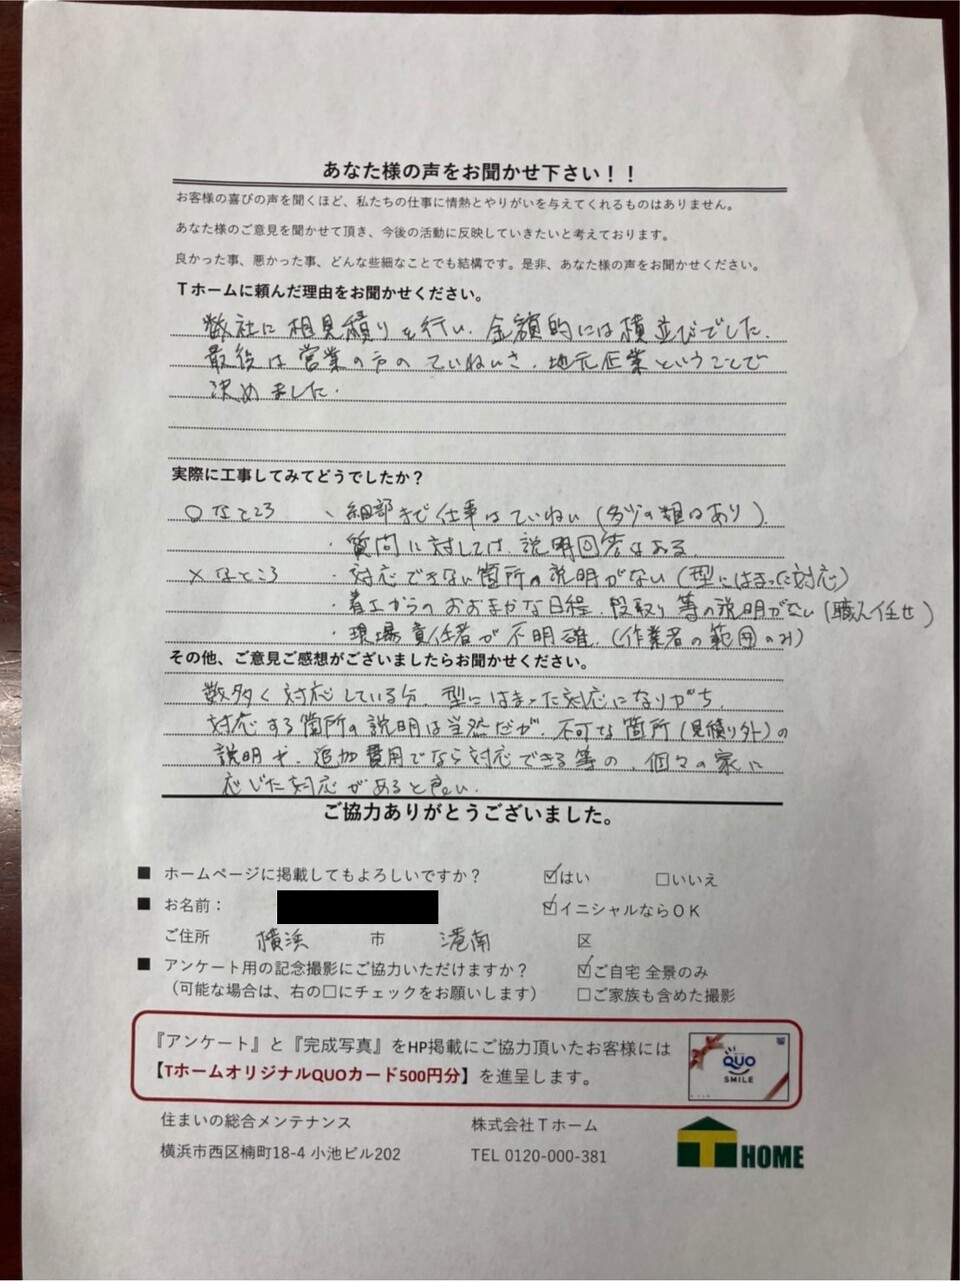 あなた様の声をお聞かせ下さい！！
お客様の喜びの声を聞くほど、私たちの仕事に情熱とやりがいを与えてくれるものはありません。
あなた様のご意見を聞かせて頂き、今後の活動に反映していきたいと考えております。
良かった事、悪かった事、どんな些細なことでも結構です。是非、あなた様の声をお聞かせください。
Tホームに頼んだ理由をお聞かせください。
数社に相見積りを行い、金額的には横並びでした。
最後は営業の方のていねいさ、地元企業ということで
決めました。
実際に工事してみてどうでしたか？
○なところ ・細部まで仕事はていねい(多少の粗はあり)
・質問に対しては、説明回答はある。
×なところ ・対応できない箇所の説明がない(型にはまった対応)
・着工からのおおまかな日程、段取り等の説明がない(職人任せ)
・現場責任者が不明確。(作業者の範囲のみ)
その他、ご意見ご感想がございましたらお聞かせください。
数多く対応している分、型にはまった対応になりがち。
対応する箇所の説明は当然だが、不可な箇所(見積り外)の
説明や、追加費用でなら対応できる等の、個々の家に
応じた対応があると良い。
ご協力ありがとうございました。
■ ホームページに掲載してもよろしいですか？ ☑はい □いいえ
■ お名前： ☑イニシャルならOK
ご住所 横浜 市 港南 区
■ アンケート用の記念撮影にご協力いただけますか？ ☑ご自宅 全景のみ
（可能な場合は、右の□にチェックをお願いします） □ご家族も含めた撮影
『アンケート』と『完成写真』をHP掲載にご協力頂いたお客様には
【TホームオリジナルQUOカード500円分】を進呈します。
QUO
SMILE
住まいの総合メンテナンス 株式会社Tホーム
横浜市西区楠町18-4 小池ビル202 TEL 0120-000-381
T HOME